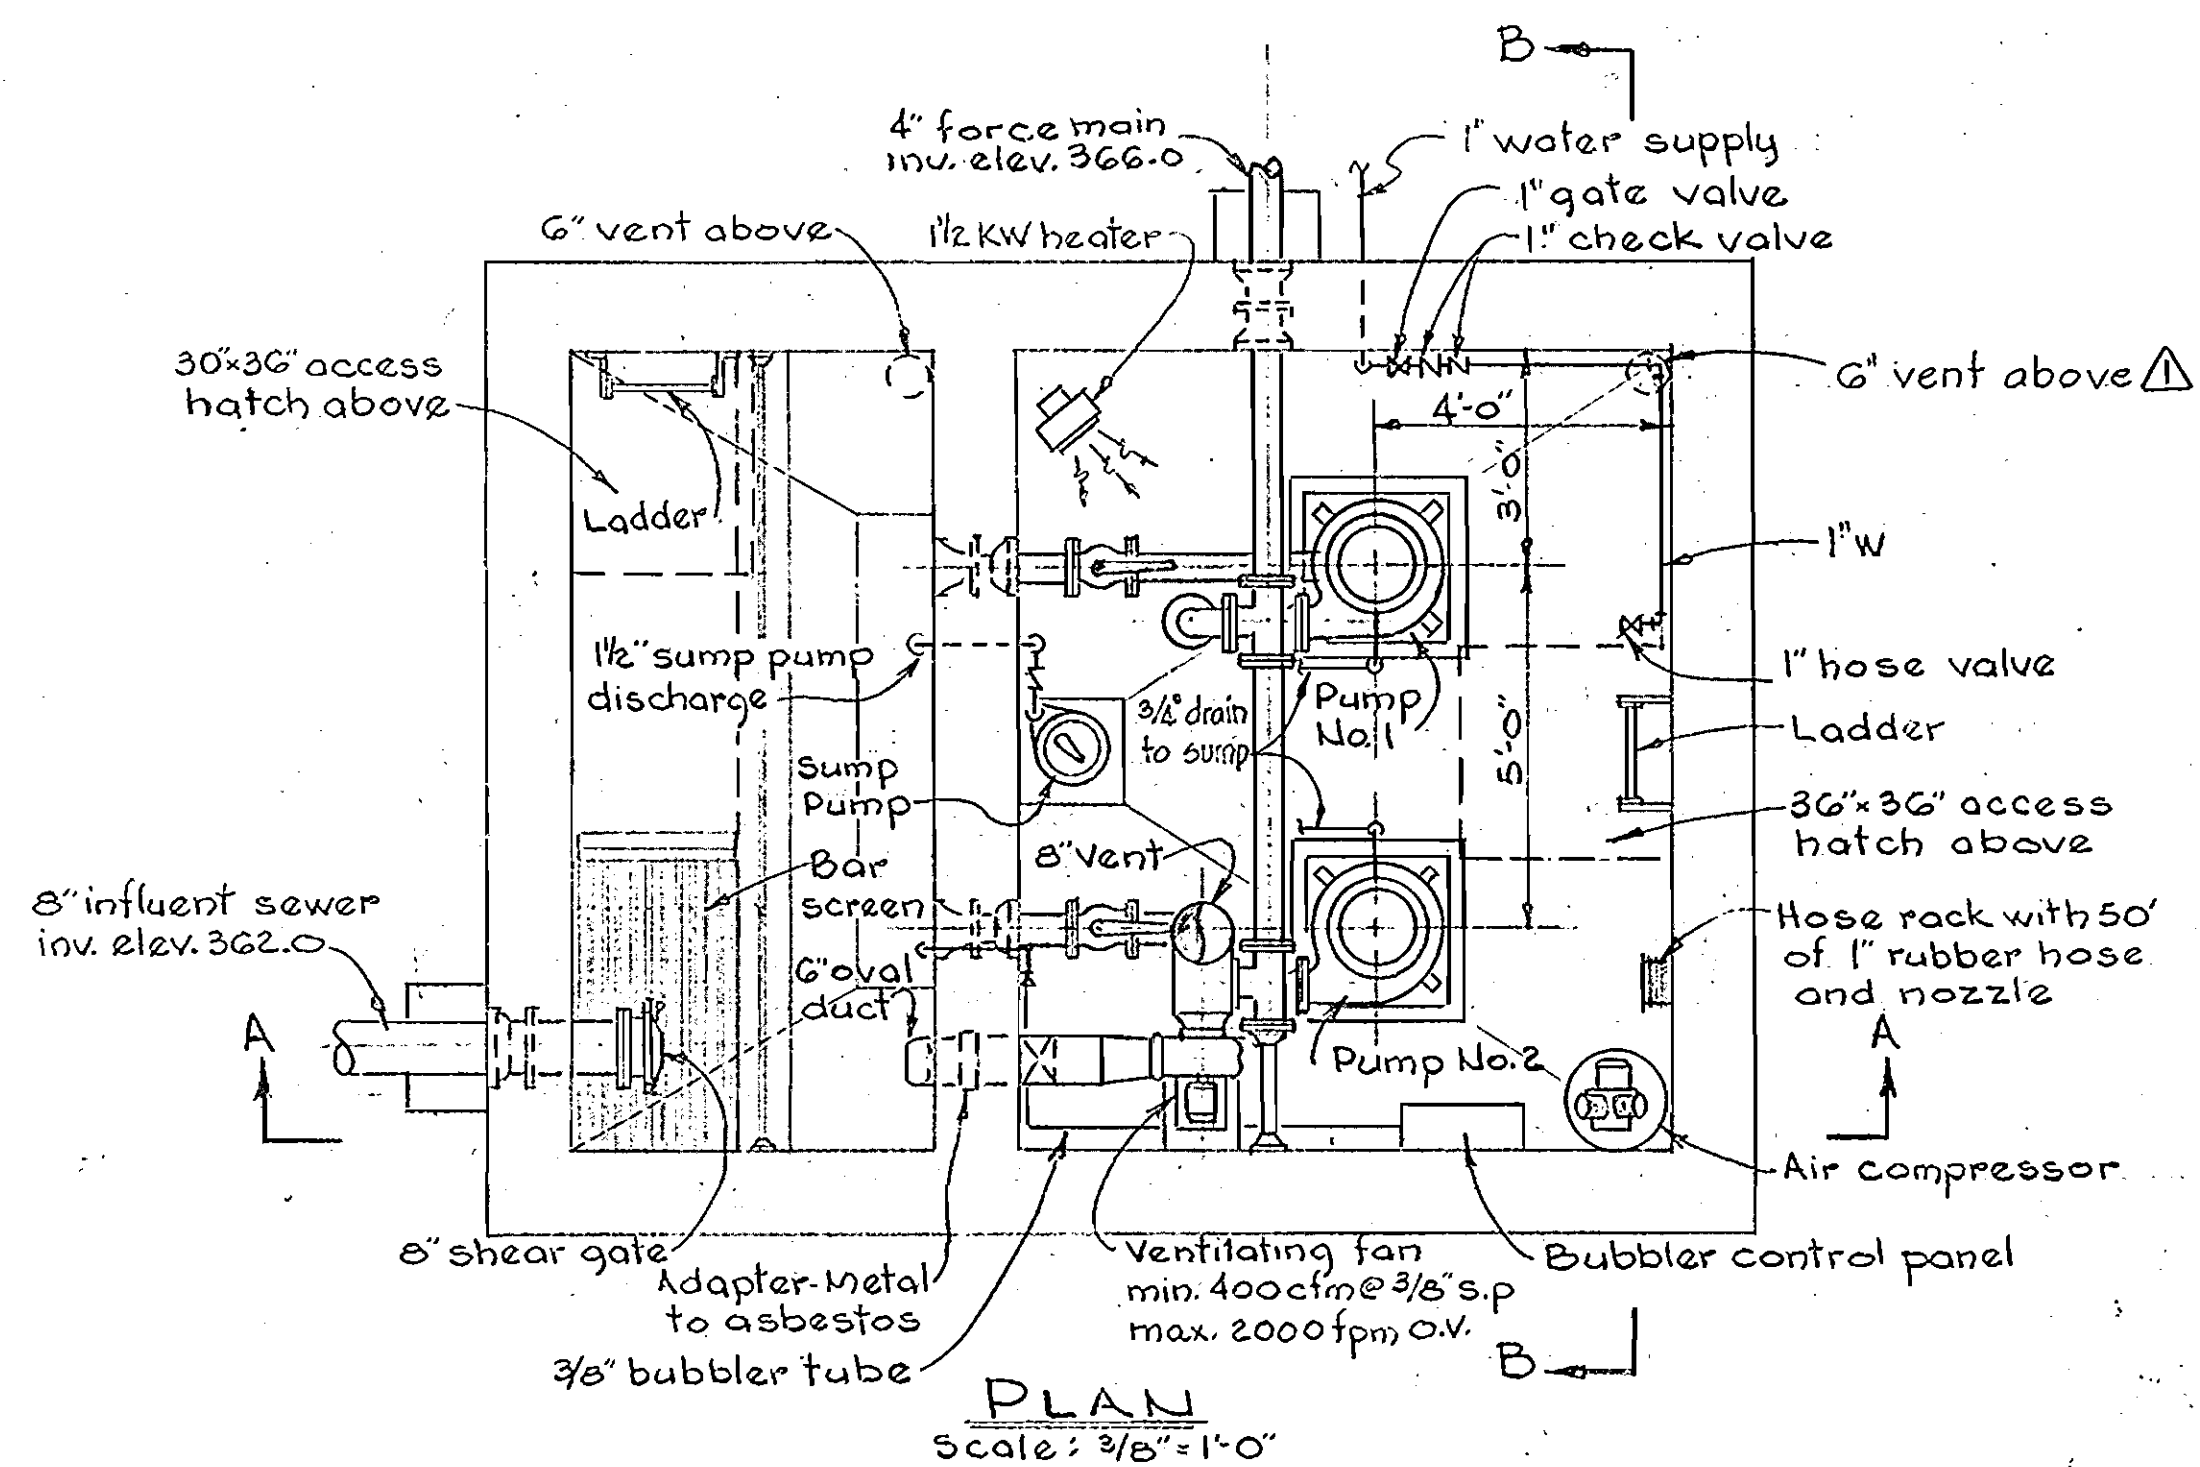 B
4" force main
inv. elev. 366.0
1" water supply
1" gate valve
1" check valve
6" vent above
1½ KW heater
30"x36" access
hatch above
6" vent above 1
4'-0"
3'-0"
Ladder
1"W
1½" sump pump
discharge
1" hose valve
3/4" drain
to sump
Pump
No. 1
Ladder
5'-0"
Sump
Pump
36"x36" access
hatch above
8" Vent
Bar
screen
8" influent sewer
inv. elev. 362.0
Hose rack with 50'
of 1" rubber hose
and nozzle
6" oval
duct
A
A
Pump No. 2
Air compressor
8" shear gate
Adapter-Metal
to asbestos
Ventilating fan
min. 400 cfm @ 3/8" s.p
max. 2000 fpm O.V.
Bubbler control panel
3/8" bubbler tube
B
PLAN
Scale: 3/8" = 1'-0"